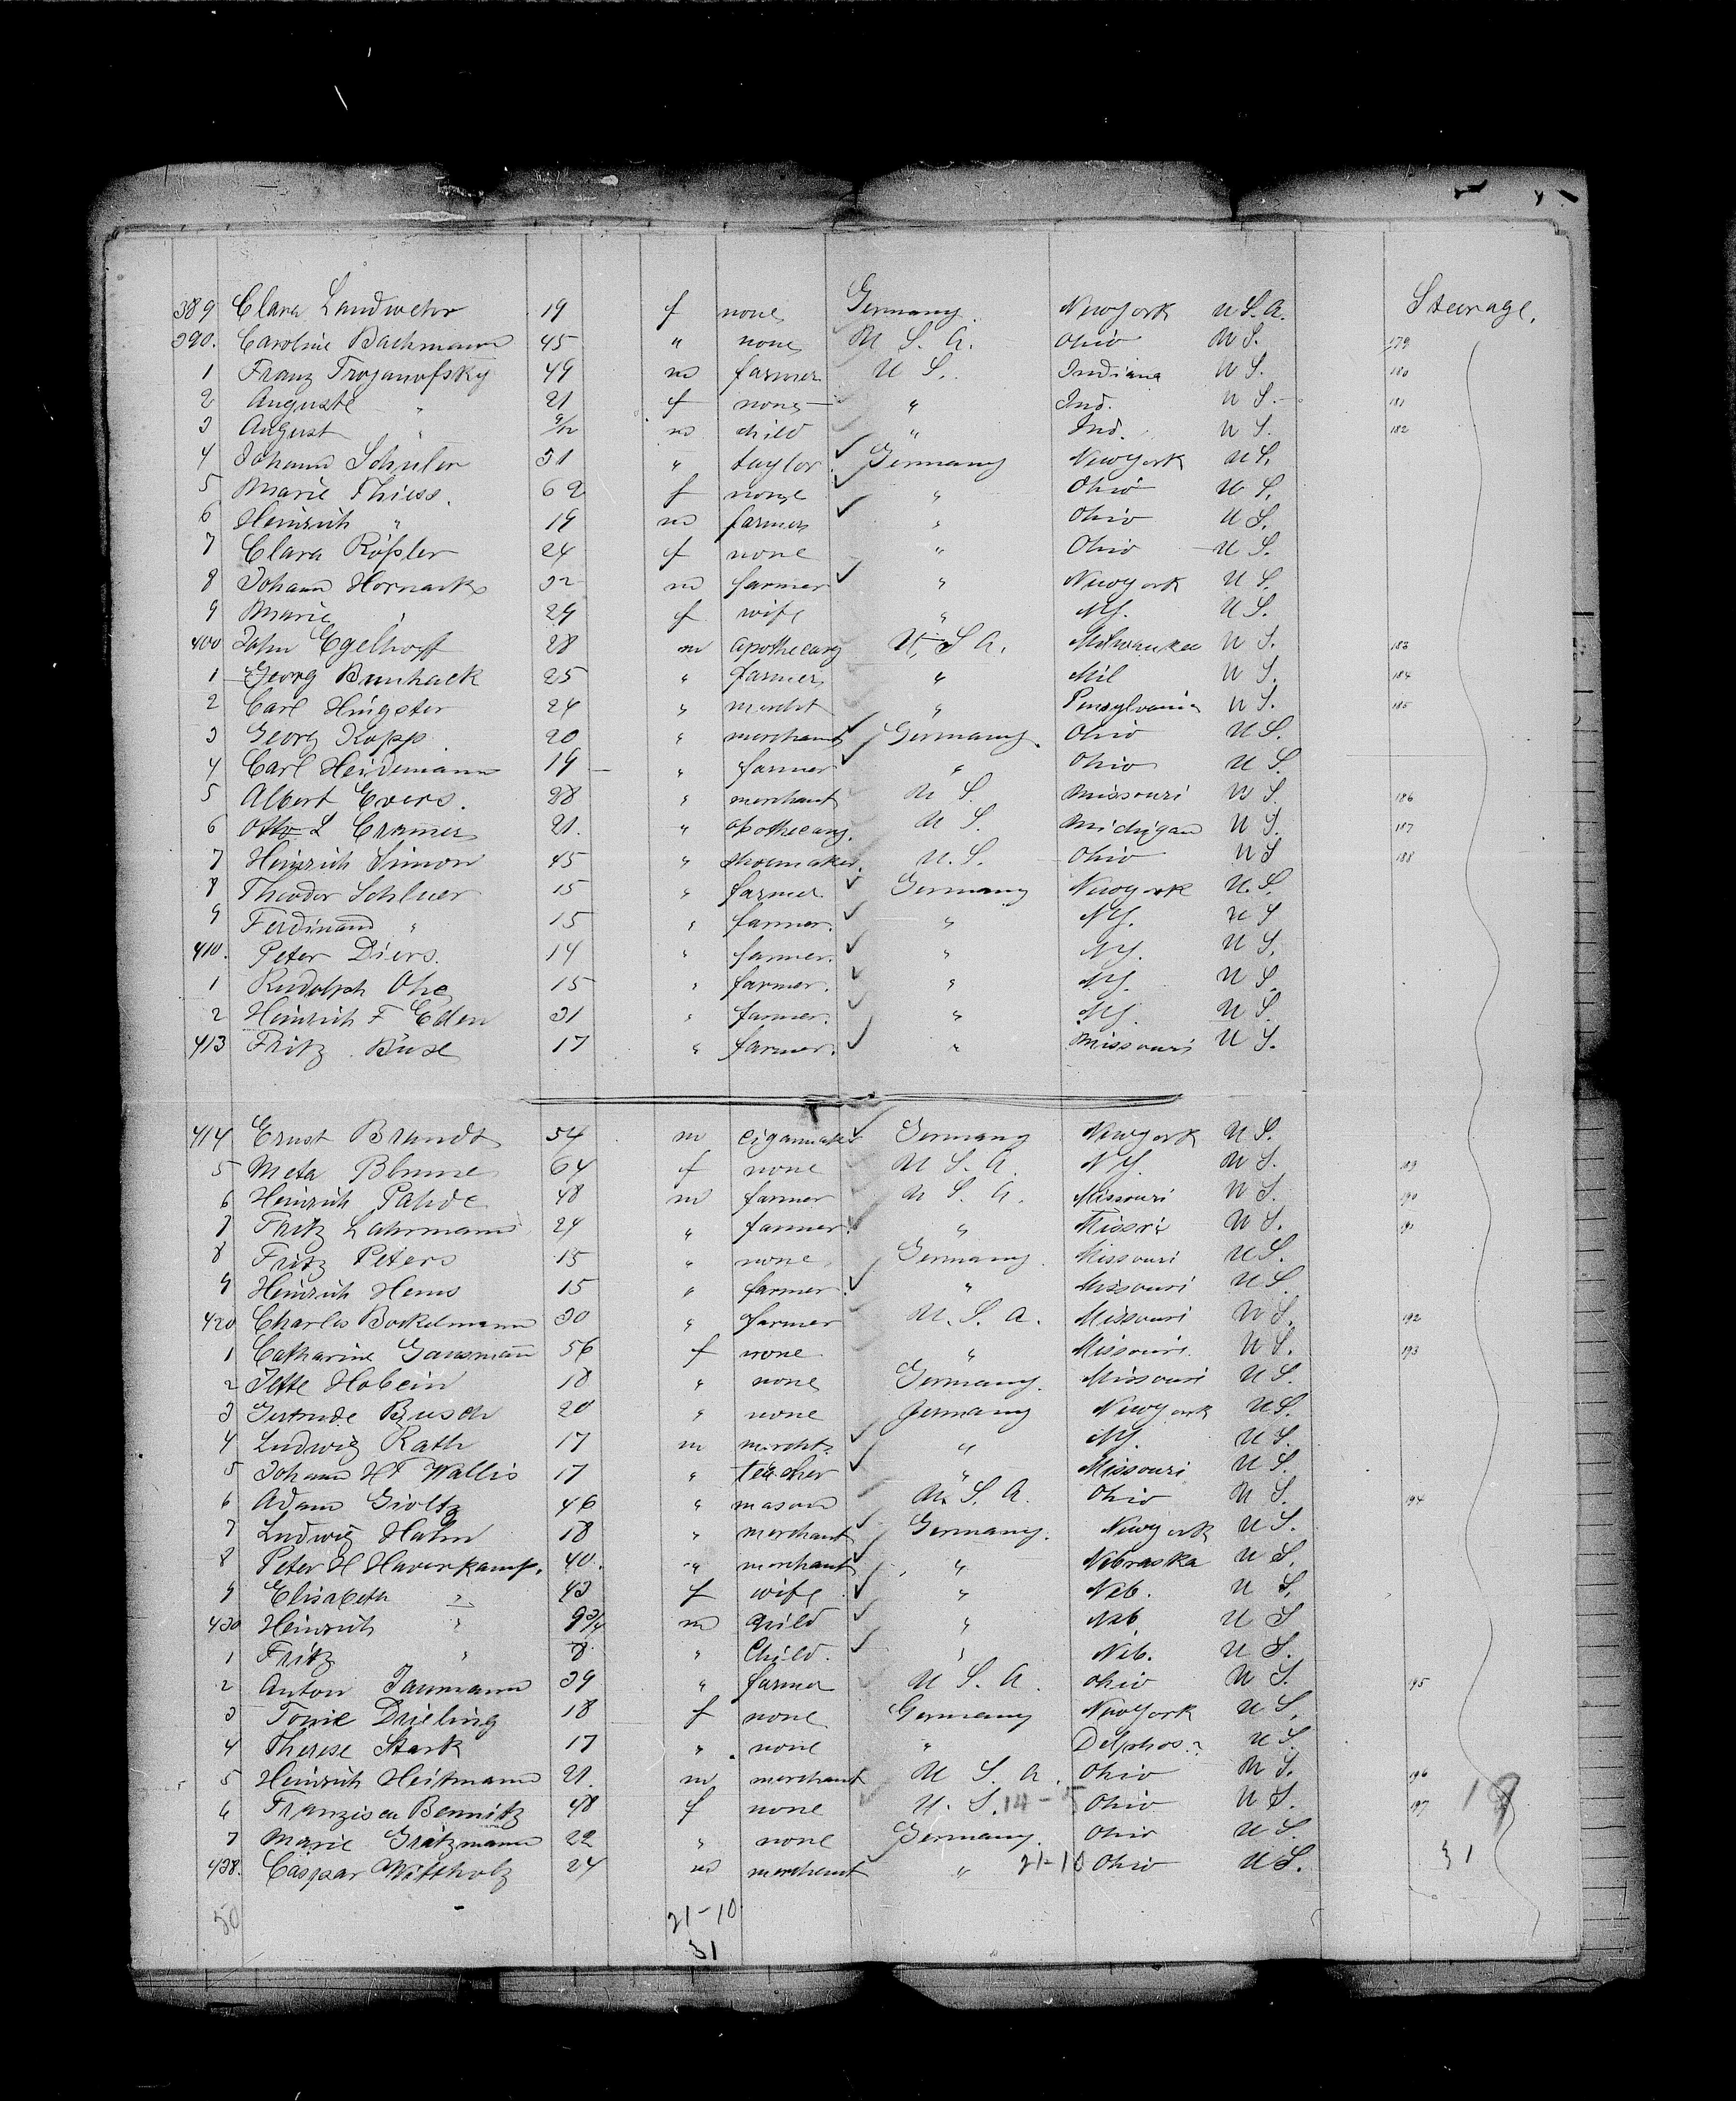 Steerage.
389 Clara Landwehr 19 f none Germany. New York U.S.A.
390. Caroline Bachmann 45 " none U.S.A. Ohio U S. 179
1 Franz Troyanofsky 49 m farmer U S. Indiana U S. 180
2 Auguste " 21 f none " Ind. U S. 181
3 August " 9/12 m child " Ind. U S. 182
4 Johann Schuler 31 " taylor Germany New York U S.
5 Marie Thiess. 62 f none " Ohio U S.
6 Heinrich " 19 m farmer " Ohio U S.
7 Clara Rößler 24 f none " Ohio U S.
8 Johann Hornack 32 m farmer " New York U S.
9 Marie " 29 f wife " NY. U S.
400 John Egelhoff 28 m apothecary U.S A. Milwaukee U S. 183
1 Georg Bunhack 25 " farmer " Mil U S. 184
2 Carl Hingster 24 " mercht " Pensylvania U S. 185
3 Georg Kopp 20 " merchant Germany. Ohio U S.
4 Carl Heidemann 19 " farmer " Ohio U S.
5 Albert Evers. 28 " merchant U S. Missouri U S. 186
6 Otto L Cramer 21. " apothecary. U S. Michigan U S. 187
7 Heinrich Simon 45 " shoemaker. U.S. Ohio U S 188
8 Theodor Schluer 15 " farmer Germany New York U.S.
9 Ferdinand " 15 " farmer. " NY. U S
410. Peter Diers. 14 " farmer. " NY. U S.
1 Rudolph Ohe 15 " farmer. " NY. U S.
2 Heinrich F Eden 31 " farmer. " NY. U S.
413 Fritz Büse 17 " farmer. " Missouri U S.
414 Ernst Brandt 54 m cigarmaker Germany New York U S.
5 Meta Blume 64 f none U S. A. N Y. U S. 189
6 Heinrich Pahde 48 m farmer U S. A. Missouri U S. 190
7 Fritz Lahrmann 24 " farmer. " Missri U S. 191
8 Fritz Peters 15 " none Germany. Missouri U S.
9 Heinrich Hems 15 " farmer. " Missouri U S.
420 Charles Bockelmann 30 " farmer U. S. A. Missouri U S. 192
1 Catharine Gausmann 56 f none " Missouri. U S. 193
2 Jette Hobein 18 " none Germany. Missouri U S.
3 Gertrude Busch 20 " none Germany New York U S.
4 Ludwig Rath 17 m merchts " NY. U S.
5 Johann H F Wallis 17 " teacher " Missouri U S.
6 Adam Gioltz 46 " mason U. S. A. Ohio U S. 194
7 Ludwig Hahn 18 " merchant Germany. New York U S.
8 Peter H Haverkamp. 40. " merchant " Nebraska U S.
9 Elisabeth " 43 f wife " Neb. U S.
430 Heinrich " 9 3/4 m child " Neb U S
1 Fritz " 8 " Child. " Neb. U S.
2 Anton Taumann 39 " farmer U S. A. Ohio U S. 195
3 Tonie Drieling 18 f none Germany New York U S.
4 Therese Stark 17 " none " Delphos? U S.
5 Heinrich Heitmann 21. m merchant U S. A. Ohio U S. 196
6 Franzisca Bennitz 48 f none U. S. 14-5 Ohio U S. 197 19
7 Marie Grätzmann 22 " none Germany. Ohio U S.
438. Caspar Wittholz 24 m merchant " 21-10 Ohio U S. 31
50 21-10
31